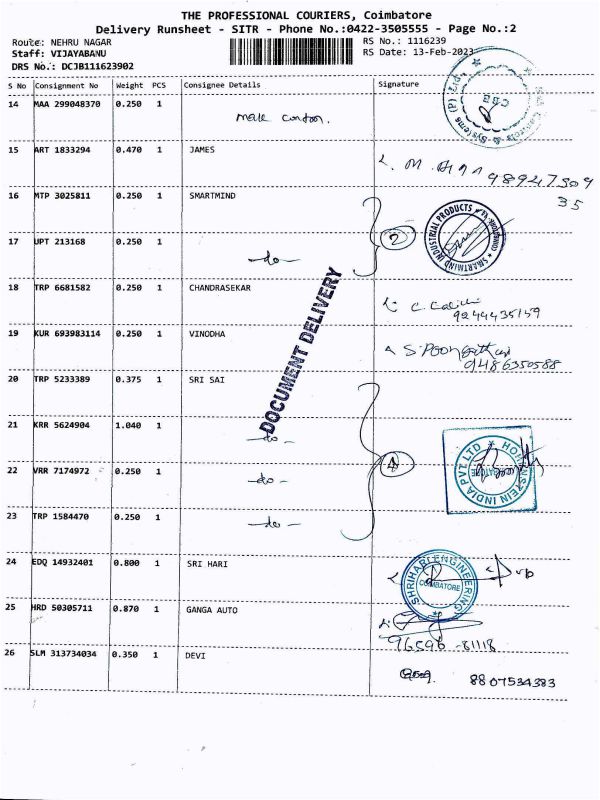 THE PROFESSIONAL COURIERS, Coimbatore
Delivery Runsheet - SITR - Phone No.:0422-3505555 - Page No.:2
Route: NEHRU NAGAR RS No.: 1116239
Staff: VIJAYABANU RS Date: 13-Feb-2023
DRS No.: DCJB111623902
S No Consignment No Weight PCS Consignee Details Signature
14 MAA 299048370 0.250 1
15 ART 1833294 0.470 1 JAMES
98947309
35
16 MTP 3025811 0.250 1 SMARTMIND
2
SMARTMIND INDUSTRIAL PRODUCTS
COIMBATORE
17 UPT 213168 0.250 1 -do-
18 TRP 6681582 0.250 1 CHANDRASEKAR
9244435159
19 KUR 693983114 0.250 1 VINODHA
9486350588
DOCUMENT DELIVERY
20 TRP 5233389 0.375 1 SRI SAI
21 KRR 5624904 1.040 1 -do-
22 VRR 7174972 0.250 1 -do-
4
HOHENSTEIN INDIA PVT. LTD
23 TRP 1584470 0.250 1 -do-
24 EDQ 14932401 0.800 1 SRI HARI
SHRIHARI ENGINEERING
COIMBATORE
25 HRD 50305711 0.870 1 GANGA AUTO
96596-81118
26 SLM 313734034 0.350 1 DEVI
8807534383